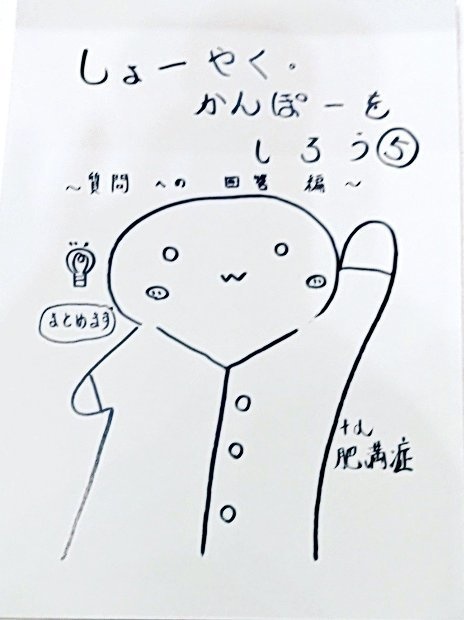 しょーやく・
かんぽーを
しろう⑤
～質問への回答編～
まとめます
+α
肥満症